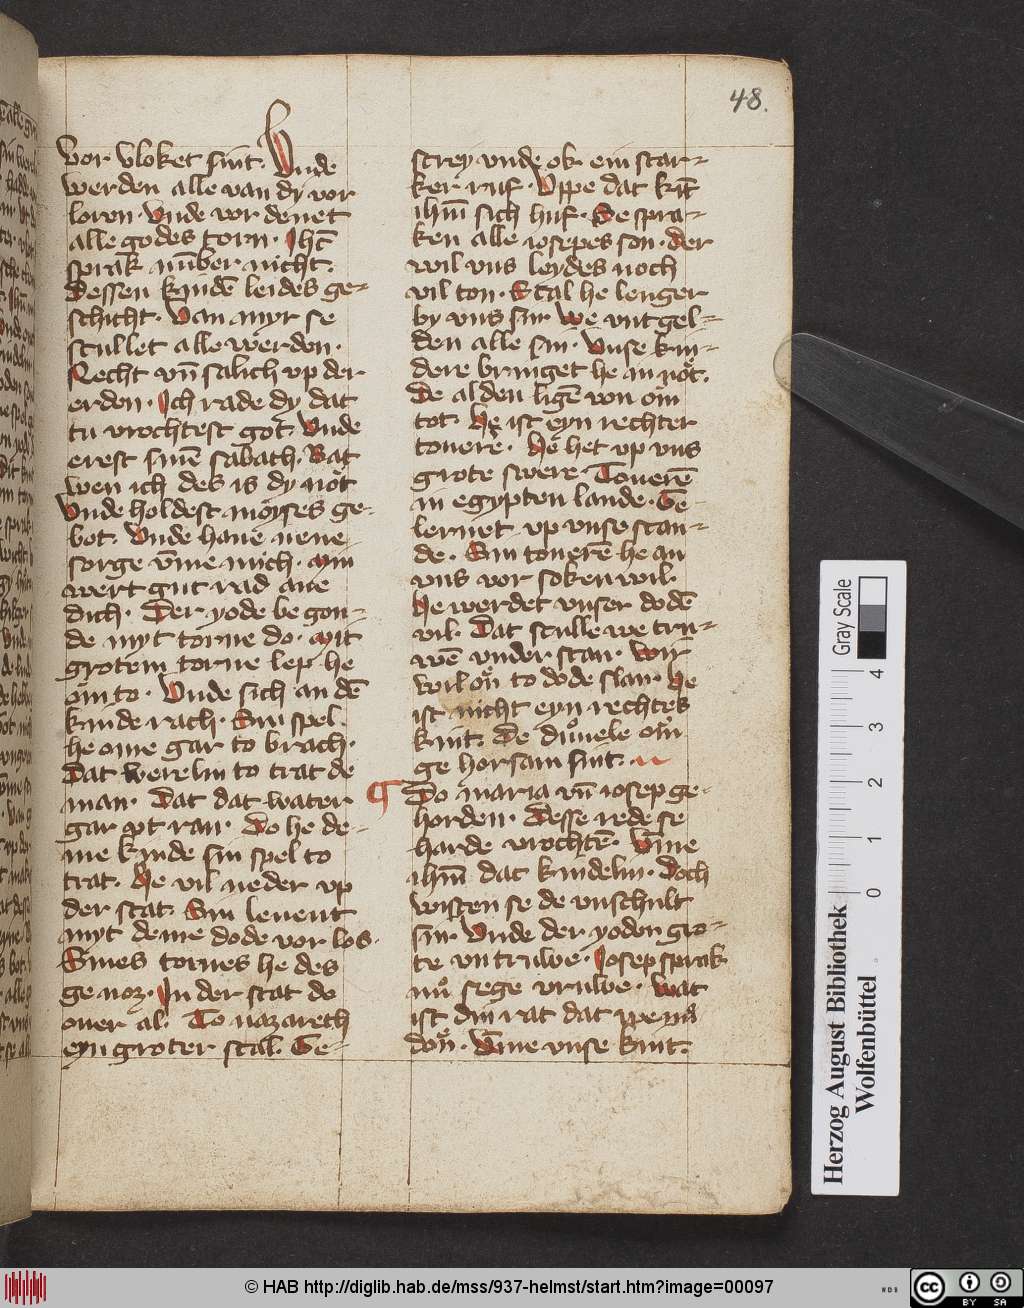 48.
vor vloket sint. Vnde
werden alle van dy vor
loren. Vnde vor denet
alle godes torn. Ihc̄
sprak nūber nicht.
Dessen kindē leides ge-
schicht. Van myr se
scullet alle werden.
Recht vn̄ salich vp der
erden. Ich rade dy dat
tu vrochtest got. Vnde
erest sinē sabath. Wat
wen ich des is dy not
Vnde holdest moyses ge-
bot. Vnde haue nene
sorge v̄me mich. Min
wert gut rad ane
dich. Der yode be gon-
de myt torne do. Mit
grotem torne lep he
om to. Vnde sich an dē
kinde rach. Sin spel
he ome gar to brach.
Dat werelin to trat de
man. Dat dat water
gar vt ran. Do he de-
me kinde sin spel to
trat. He vil neder vp
der stat. Sin leuent
myt deme dode vor los.
Sines tornes he des
ge noz. In der stat do
ouer al. To nazareth
eyn groter scal. Ge-
screy vnde ok ein star-
ker ruf. Vppe dat kīt
ihm̄ sich huf. Se spra-
ken alle iosepes son. der
wil vns leydes noch
vil ton. Scal he lenger
by vns sin. We vntgel-
den alle sin. Vnse kin-
dere bringet he in not.
De alden ligē von om
tot. He ist eyn rechter
touere. He het vp vns
grote swere. Touerē
in egypten lande. Ge
lernet vp vnse scan-
de. Sin touerē he an
vns vor soken wil.
He werdet vnser dodē
vil. Dat sculle we tru-
wē vnder stan. Wir
wil on to dode slan. He
ist nicht eyn rechtes
kint. De duuele om
ge horsam sint.
Do maria vn̄ iosep ge-
horden. Desse rede se
harde vrochtē. V̄me
ihm̄ dat kindelin. Doch
wisten se de vnschult
sin. Vnde der yoden gro-
te vntruwe. Iosep sprak
nu sege vruwe. Wat
ist din rat dat we nu
don. V̄me vnse kint.
Herzog August Bibliothek
Wolfenbüttel
Gray Scale
0 1 2 3 4
© HAB http://diglib.hab.de/mss/937-helmst/start.htm?image=00097
WDB
CC BY SA